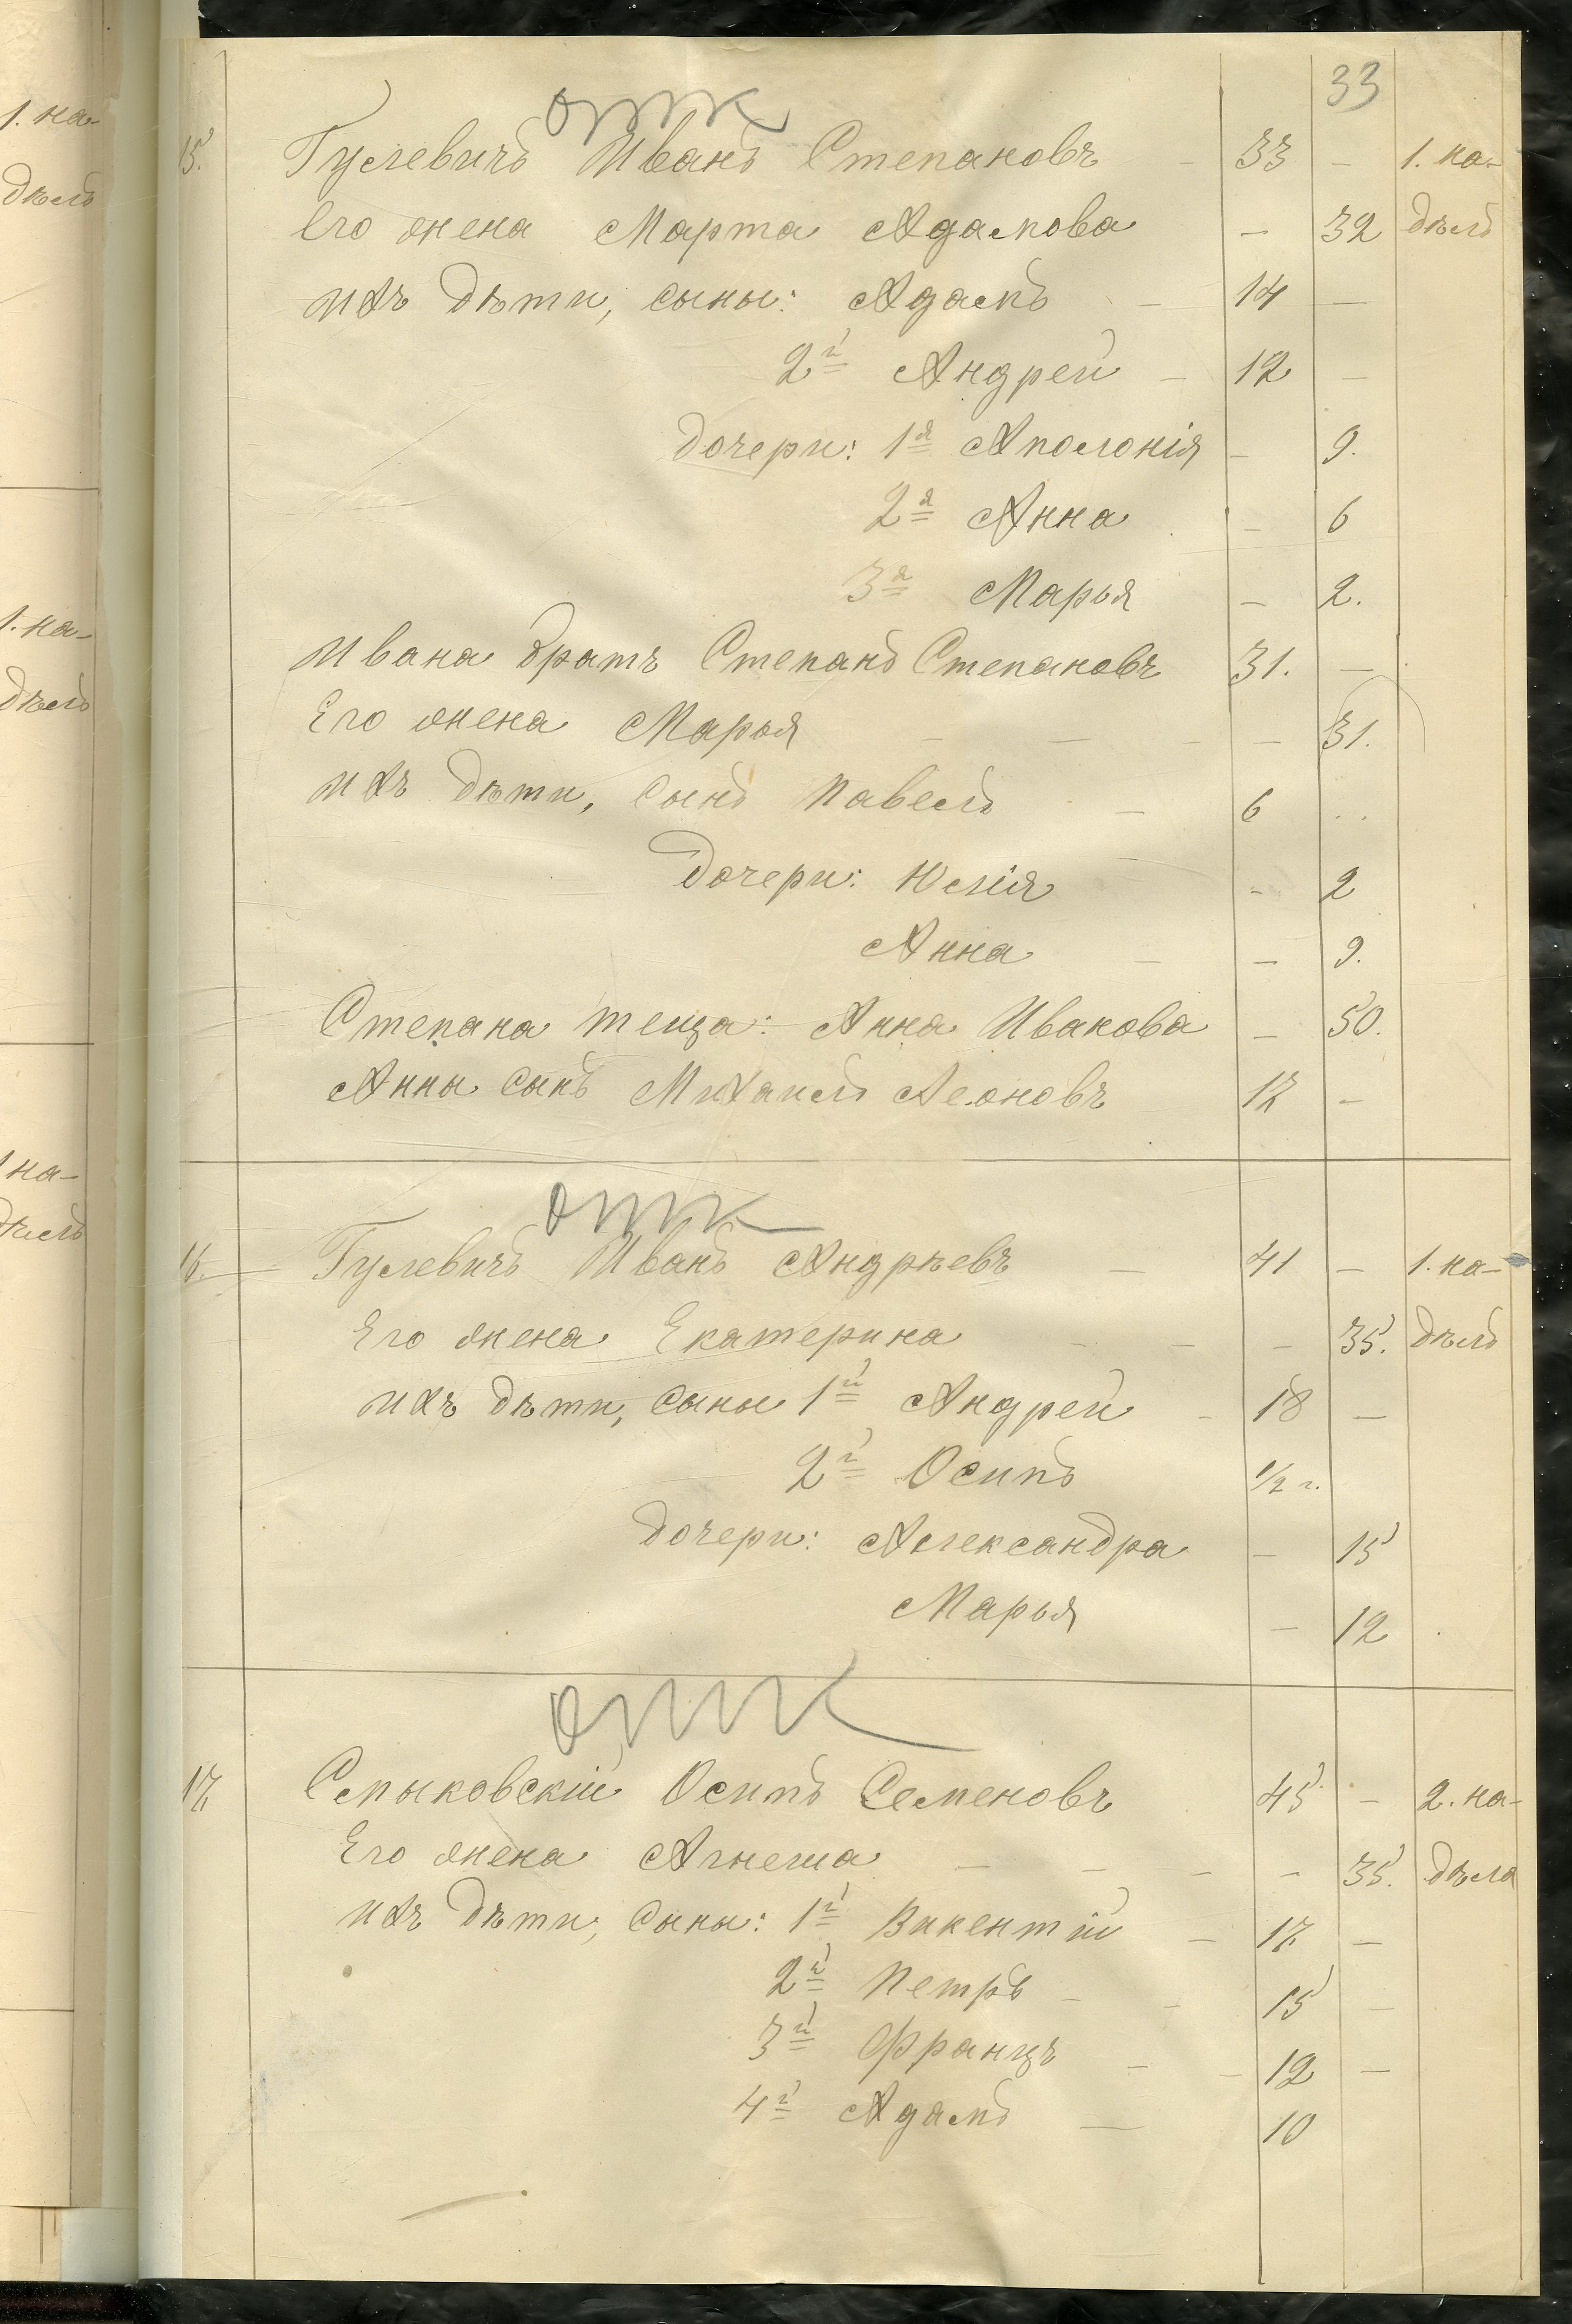 33
отк
15. Гуслевичъ Иванъ Степановъ - 33 - 1. на-
Его жена Марта Адамова - 32 дѣлъ
ихъ дѣти, сыны: Адамъ - 14 -
2й Андрей - 12 -
дочери: 1я Аполонія - 9.
2я Анна - 6
3я Марья - 2.
Ивана братъ Степанъ Степановъ 31. -
Его жена Марья - - - - 31.
ихъ дѣти, сынъ Павелъ - 6 . .
дочери: Юлія - 2
Анна - - 9.
Степана теща: Анна Иванова - 50.
Анны сынъ Михаилъ Леоновъ 17 -
отк
16. Гуслевичъ Иванъ Андрѣевъ - 41 - 1. на-
Его жена Екатерина - - - 35. дѣлъ
ихъ дѣти, сыны 1й Андрей - 18 -
2й Осипъ 1/2 г.
дочери: Александра - 15
Марья - 12
отк
17. Смыковскій Осипъ Семеновъ 45. - 2. на-
Его жена Агнеша - - - - 35. дѣла
ихъ дѣти, сыны: 1й Викентій - 17. -
2й Петръ - - 15 -
3й Францъ - - 12 -
4й Адамъ - 10
1. на-
дѣлъ
1. на-
дѣлъ
1 на-
дѣлъ